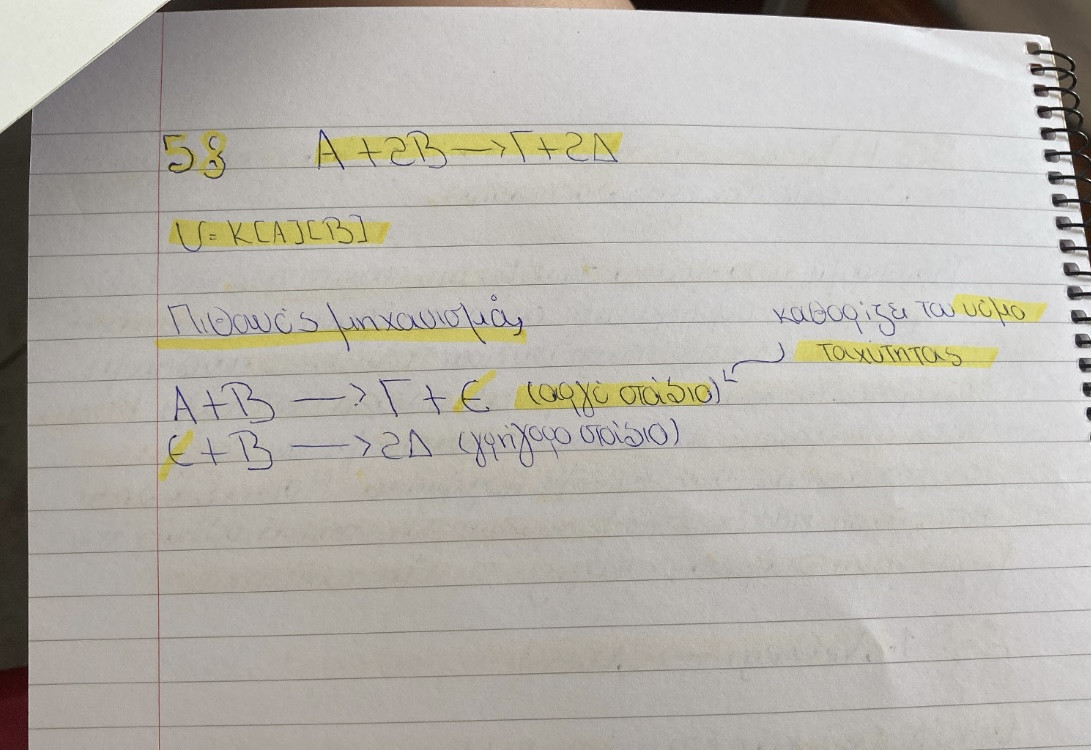 58 A+2B→Γ+2Δ
υ=K[A][B]
Πιθανός μηχανισμός
καθορίζει τον νόμο
ταχύτητας
A+B → Γ+E (αργό στάδιο)
E+B → 2Δ (γρήγορο στάδιο)